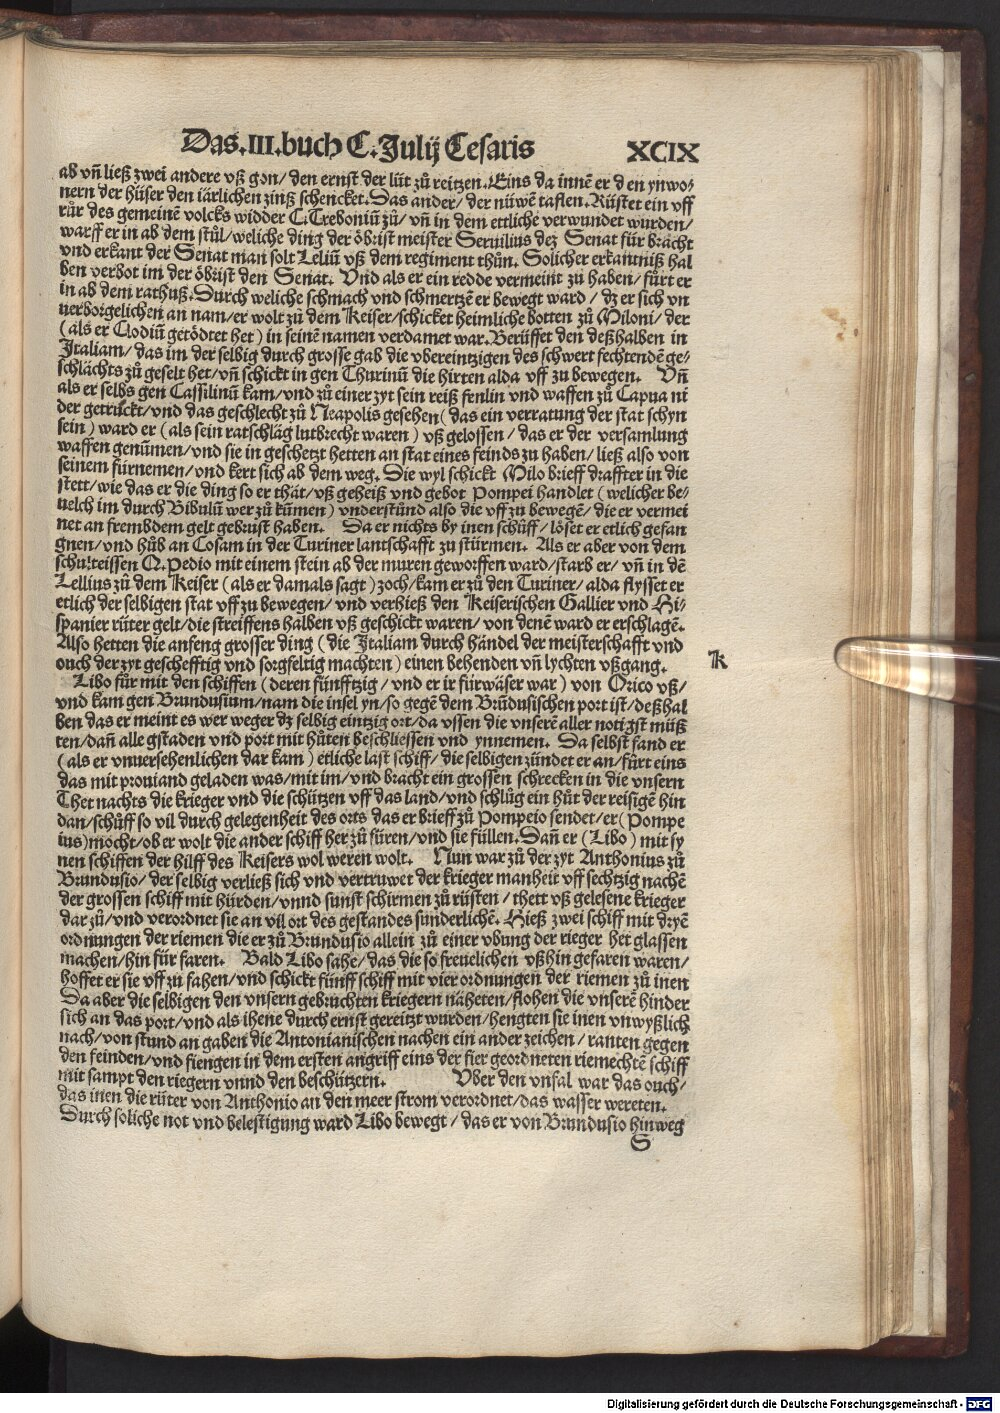 Das.III.buch C.Julij Cesaris XCIX
ab vñ ließ zwei andere vß gon/den ernst der lüt zů reitzen.Eins da innē er den ynwo⸗
nern der hüser den iärlichen zinß schencket.Das ander/der nüwē taflen.Rüstet ein vff
růr des gemeinē volcks widder C.Treboniū zů/vñ in dem ettliche verwundet wurden/
warff er in ab dem stůl/weliche ding der öbrist meister Seruilius dez Senat für bracht
vnd erkant der Senat man solt Leliū vß dem regiment thůn. Solicher erkantniß hal
ben verbot im der öbrist den Senat. Vnd als er ein redde vermeint zu haben/fürt er
in ab dem rathuß.Durch weliche schmach vnd schmertzē er bewegt ward/dz er sich vn
uerborgelichen an nam/er wolt zů dem Keiser/schicket heimliche botten zů Miloni/der
(als er Clodiū getödtet het) in seinē namen verdamet war.Berüffet den deßhalben in
Italiam/das im der selbig durch grosse gab die vbereintzigen des schwert fechtendē ge⸗
schlächts zů geselt het/vñ schickt in gen Thurinū die hirten alda vff zu bewegen. Vñ
als er selbs gen Cassilinū kam/vnd zů einer zyt sein reiß fenlin vnd waffen zů Capua nī
der getruckt/vnd das geschlecht zů Neapolis gesehen(das ein verratung der stat schyn
sein) ward er (als sein ratschläg lutbrecht waren) vß gelossen/das er der versamlung
waffen genūmen/vnd sie in geschetzt hetten an stat eines feinds zu haben/ließ also von
seinem fürnemen/vnd kert sich ab dem weg. Die wyl schickt Milo brieff draffter in die
stett/wie das er die ding so er thät/vß geheiß vnd gebot Pompei handlet (welicher be⸗
uelch im durch Bibulū wer zů kūmen) vnderstünd also die vff zu bewegē/die er vermei
net an frembdem gelt gebrust haben. Da er nichts by inen schůff/löset er etlich gefan
gnen/vnd hůb an Cosam in der Turiner lantschafft zu stürmen. Als er aber von dem
schulteissen Q.Pedio mit einem stein ab der muren geworffen ward/starb er/vñ in dē
Lellius zů dem Keiser (als er damals sagt)zoch/kam er zů den Turiner/alda flysset er
etlich der selbigen stat vff zu bewegen/vnd verhieß den Keiserischen Gallier vnd Hi⸗
spanier rüter gelt/die streiffens halben vß geschickt waren/von denē ward er erschlagē.
Also hetten die anfeng grosser ding (die Italiam durch händel der meisterschafft vnd
ouch der zyt geschefftig vnd sorgfeltig machten) einen behenden vñ lychten vßgang. K
Libo fůr mit den schiffen (deren fünfftzig/vnd er ir fürwäser war) von Orico vß/
vnd kam gen Brundusium/nam die insel yn/so gegē dem Brūdusischen port ist/deßhal
ben das er meint es wer weger dz selbig eintzig ort/da vssen die vnserē aller notigst müß
ten/dañ alle gstaden vnd port mit hůten beschliessen vnd ynnemen. Da selbst fand er
(als er vnuersehenlichen dar kam) etliche last schiff/die selbigen zündet er an/fürt eins
das mit prouiand geladen was/mit im/vnd bracht ein grossen schrecken in die vnsern
Thet nachts die krieger vnd die schützen vff das land/vnd schlůg ein hůt der reisigē hin
dan/schůff so vil durch gelegenheit des orts das er brieff zů Pompeio sendet/er(Pompe
ius)möcht/ob er wolt die ander schiff her zů füren/vnd sie füllen.Dañ er (Libo) mit sy
nen schiffen der hilff des Keisers wol weren wolt. Nun war zů der zyt Anthonius zů
Brundusio/der selbig verließ sich vnd vertruwet der krieger manheit vff sechtzig nachē
der grossen schiff mit hürden/vnnd sunst schirmen zů rüsten/thett vß gelesene krieger
dar zů/vnd verordnet sie an vil ort des gestandes sunderlichē. Hieß zwei schiff mit dryē
ordnungen der riemen die er zů Brundusio allein zů einer vbung der rieger het glassen
machen/hin für faren. Bald Libo sahe/das die so freuelichen vßhin gefaren waren/
hoffet er sie vff zu fahen/vnd schickt fünff schiff mit vier ordnungen der riemen zů inen
Da aber die selbigen den vnsern gebruchten kriegern näheten/flohen die vnserē hinder
sich an das port/vnd als ihene durch ernst gereitzt wurden/hengten sie inen vnwyßlich
nach/von stund an gaben die Antonianischen nachen ein ander zeichen/ranten gegen
den feinden/vnd fiengen in dem ersten angriff eins der fier geordneten riemechtē schiff
mit sampt den riegern vnnd den beschützern. Vber den vnfal war das ouch/
das inen die rüter von Anthonio an den meer strom verordnet/das wasser wereten.
Durch soliche not vnd belestigung ward Libo bewegt/das er von Brundusio hinweg
S
Digitalisierung gefördert durch die Deutsche Forschungsgemeinschaft - DFG